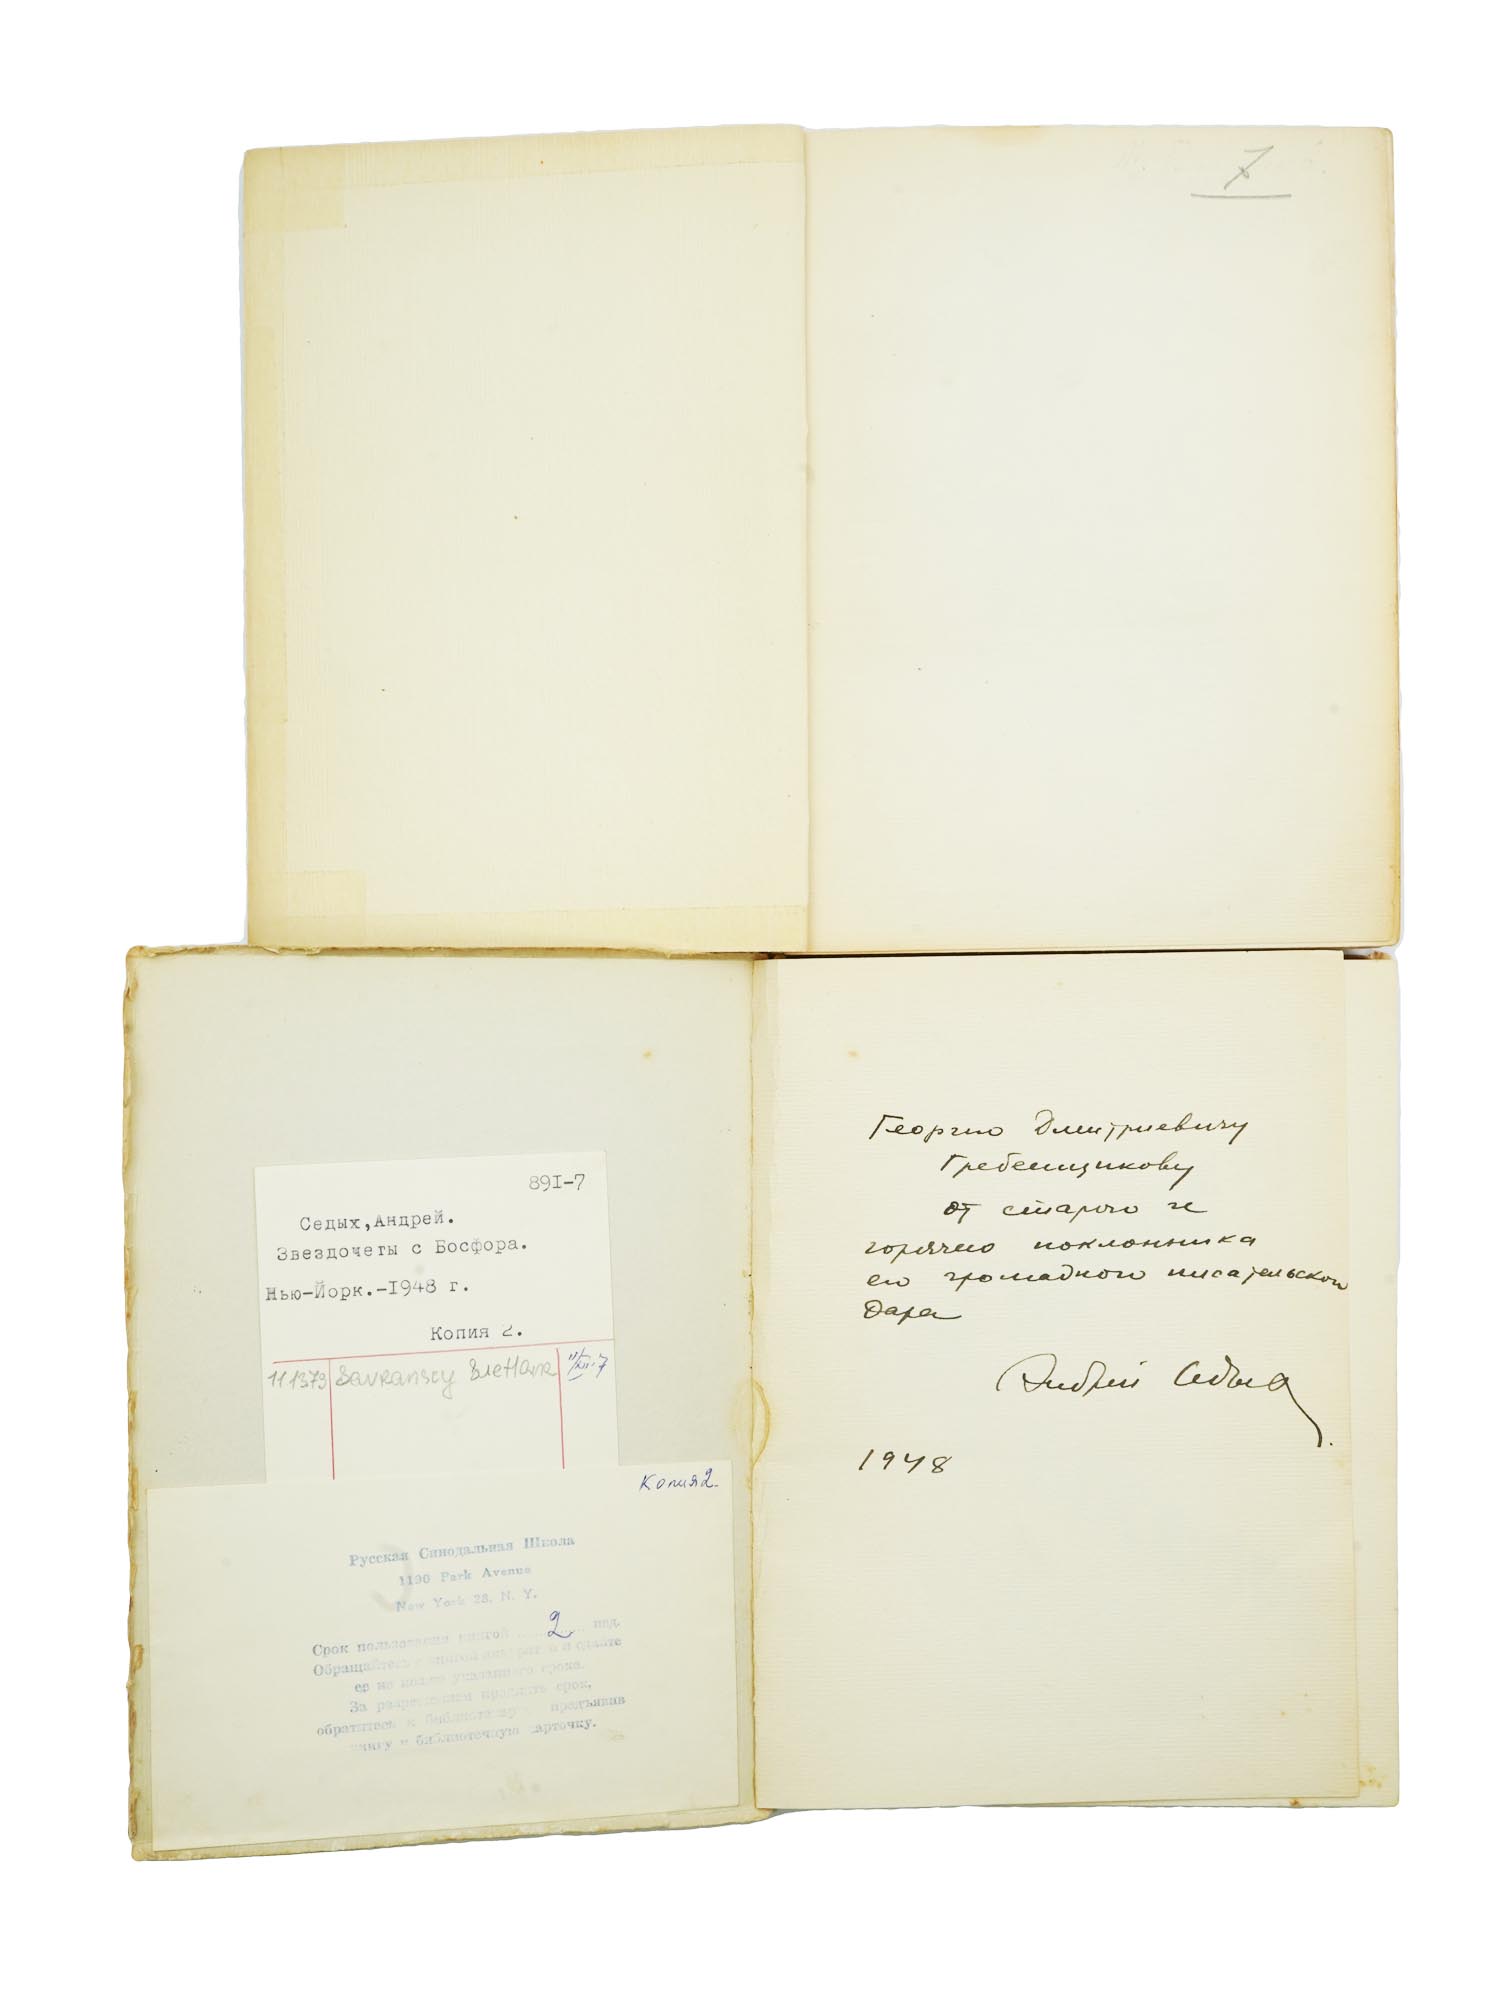 7
891-7
Седых,Андрей.
Звездочеты с Босфора.
Нью-Йорк.-1948 г.
Копия 2.
111373
Копия 2.
Русская Синодальная Школа
1190 Park Avenue
New York 28, N. Y.
Срок пользования книгой 2 нед.
Обращайтесь с книгой и сдайте
ее не позже указанного срока.
За разрешением продлить срок,
обратитесь к предъявив
книгу и библиотечную карточку.
Георгию Дмитриевичу
Гребенщикову
от старого и
горячего поклонника
его громадного писательского
дара
Андрей Седых
1948